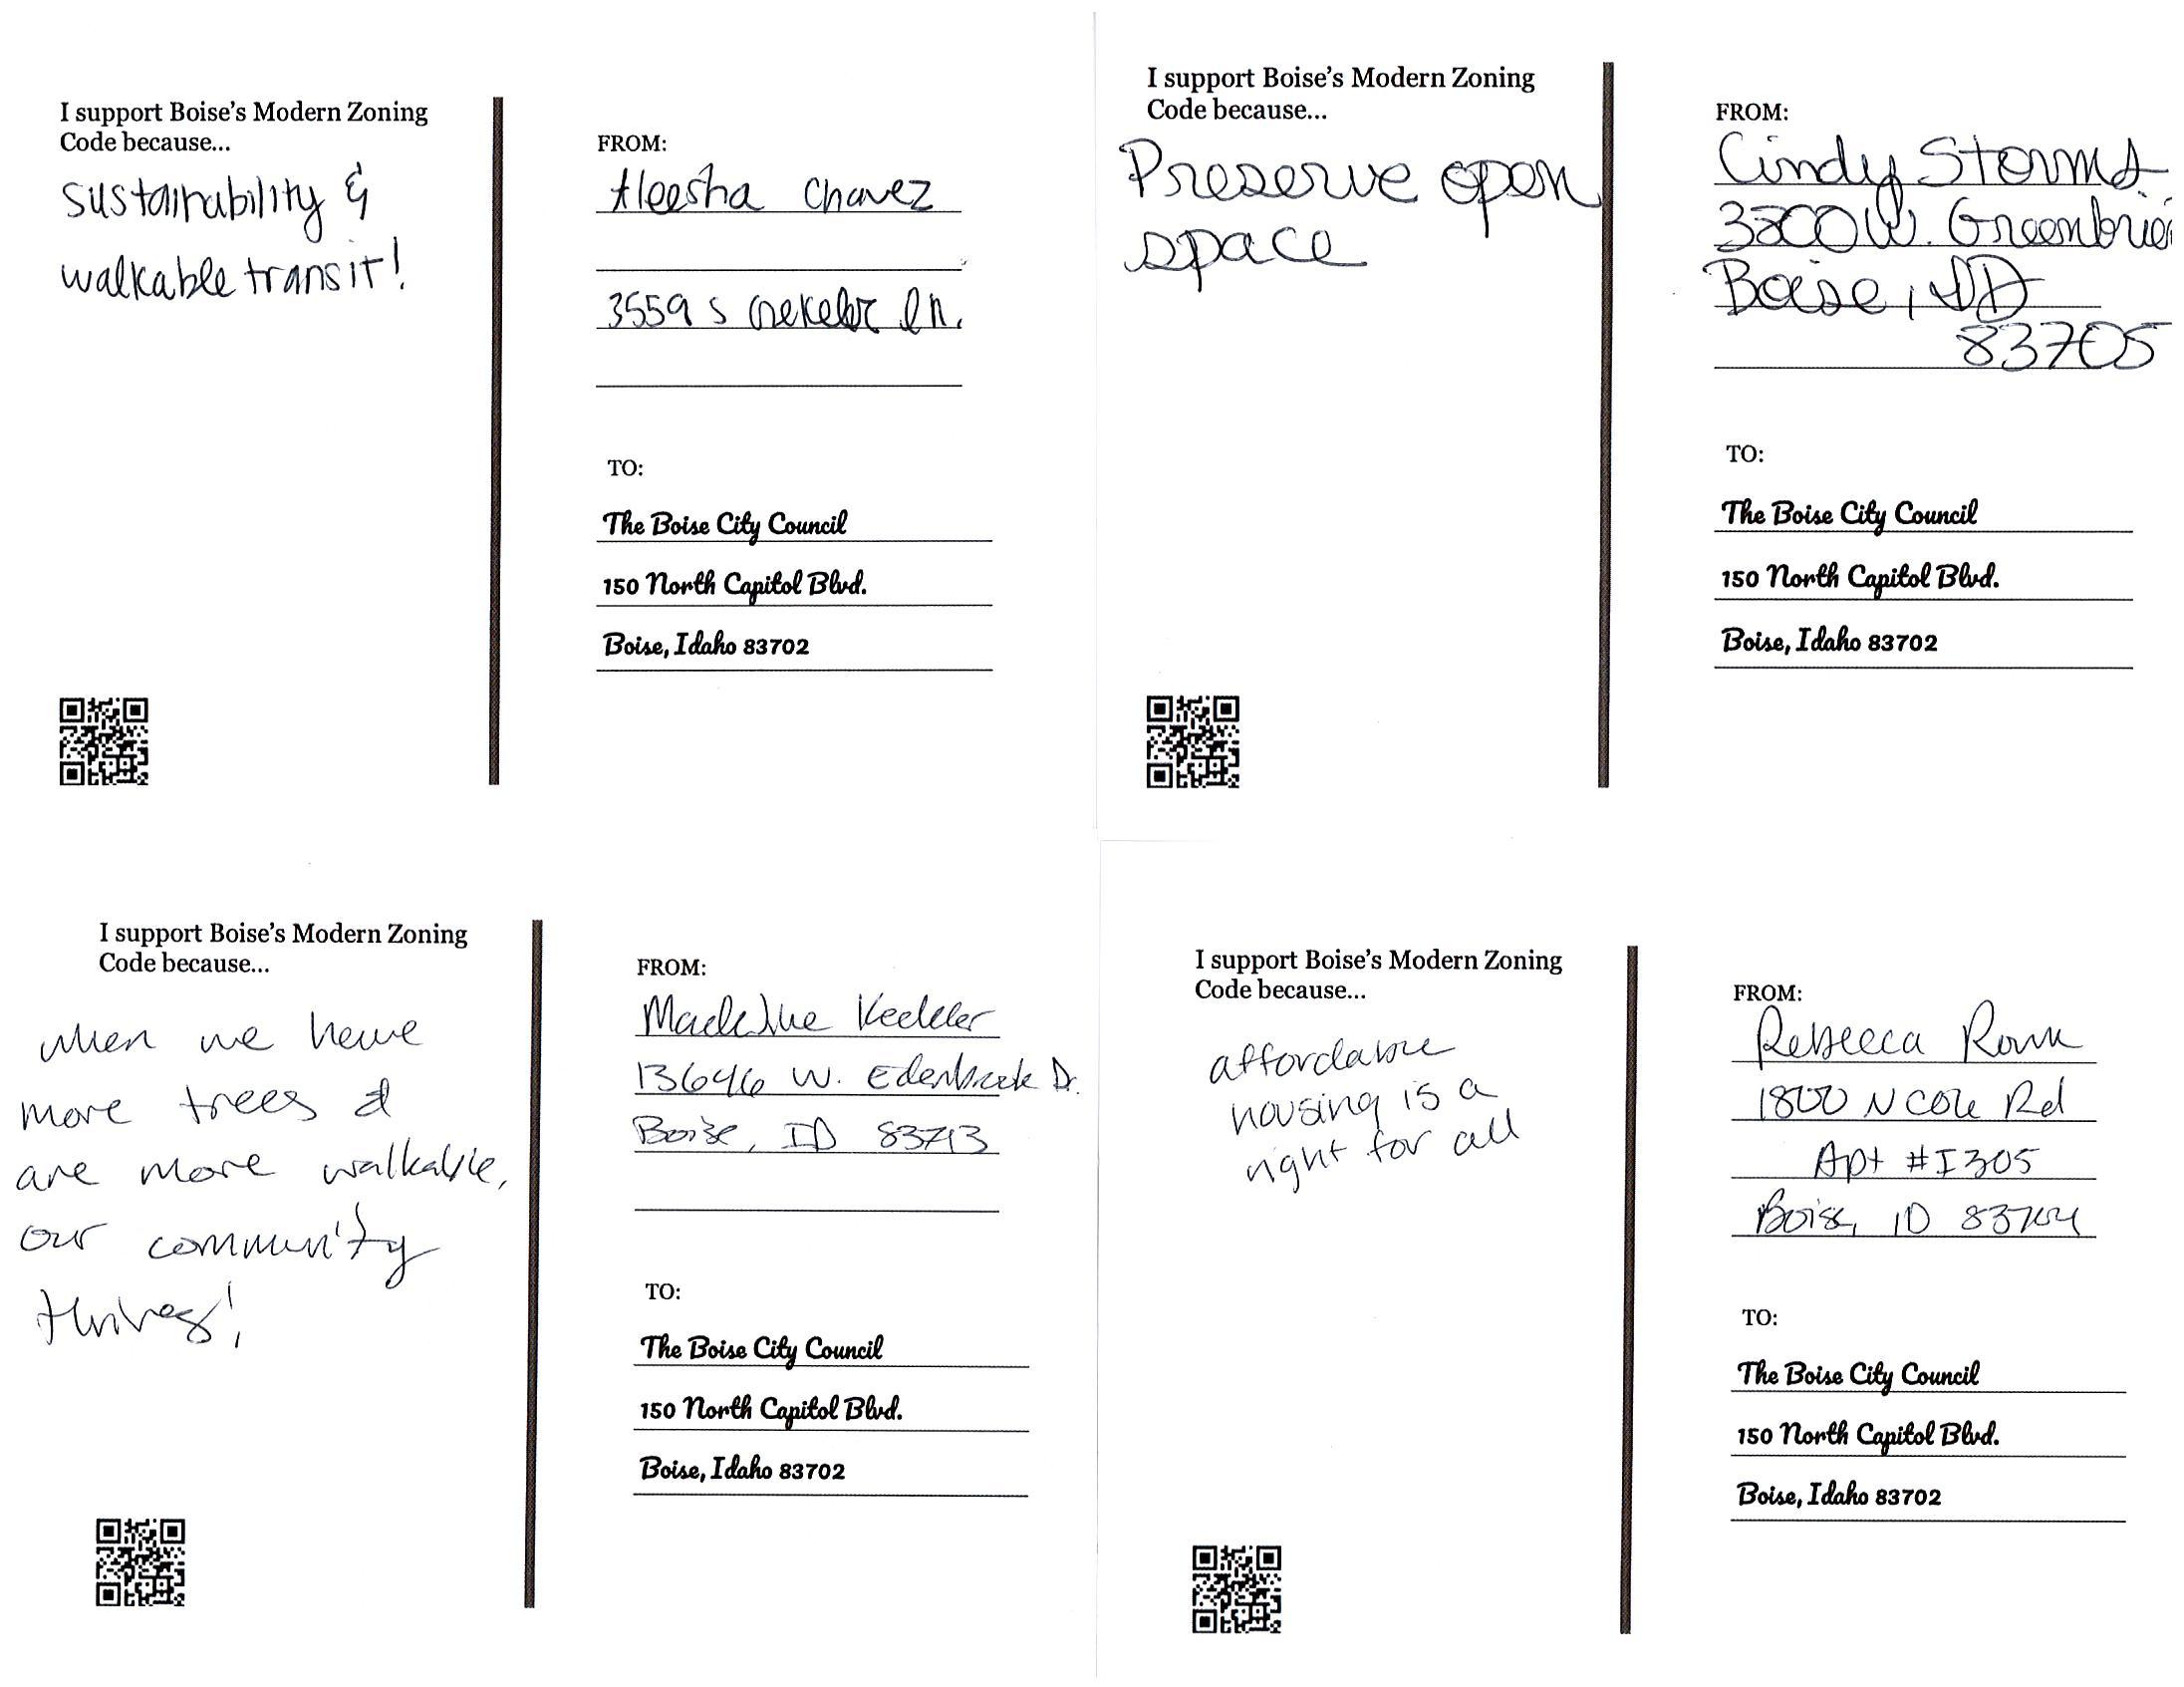 I support Boise's Modern Zoning
Code because...
sustainability &
walkable transit!
FROM:
Aleesha Chavez
3559 S ln.
TO:
The Boise City Council
150 North Capitol Blvd.
Boise, Idaho 83702
I support Boise's Modern Zoning
Code because...
Preserve open
space
FROM:
Cindy Storms
W. Greenbrier
Boise, ID
83705
TO:
The Boise City Council
150 North Capitol Blvd.
Boise, Idaho 83702
I support Boise's Modern Zoning
Code because...
when we have
more trees &
are more walkable,
our community
thrives!
FROM:
Madeline Keckler
13646 W. Edenbrook Dr.
Boise, ID 83713
TO:
The Boise City Council
150 North Capitol Blvd.
Boise, Idaho 83702
I support Boise's Modern Zoning
Code because...
affordable
housing is a
right for all
FROM:
Rebecca
1800 N Cole Rd
Apt #I305
Boise, ID 83704
TO:
The Boise City Council
150 North Capitol Blvd.
Boise, Idaho 83702